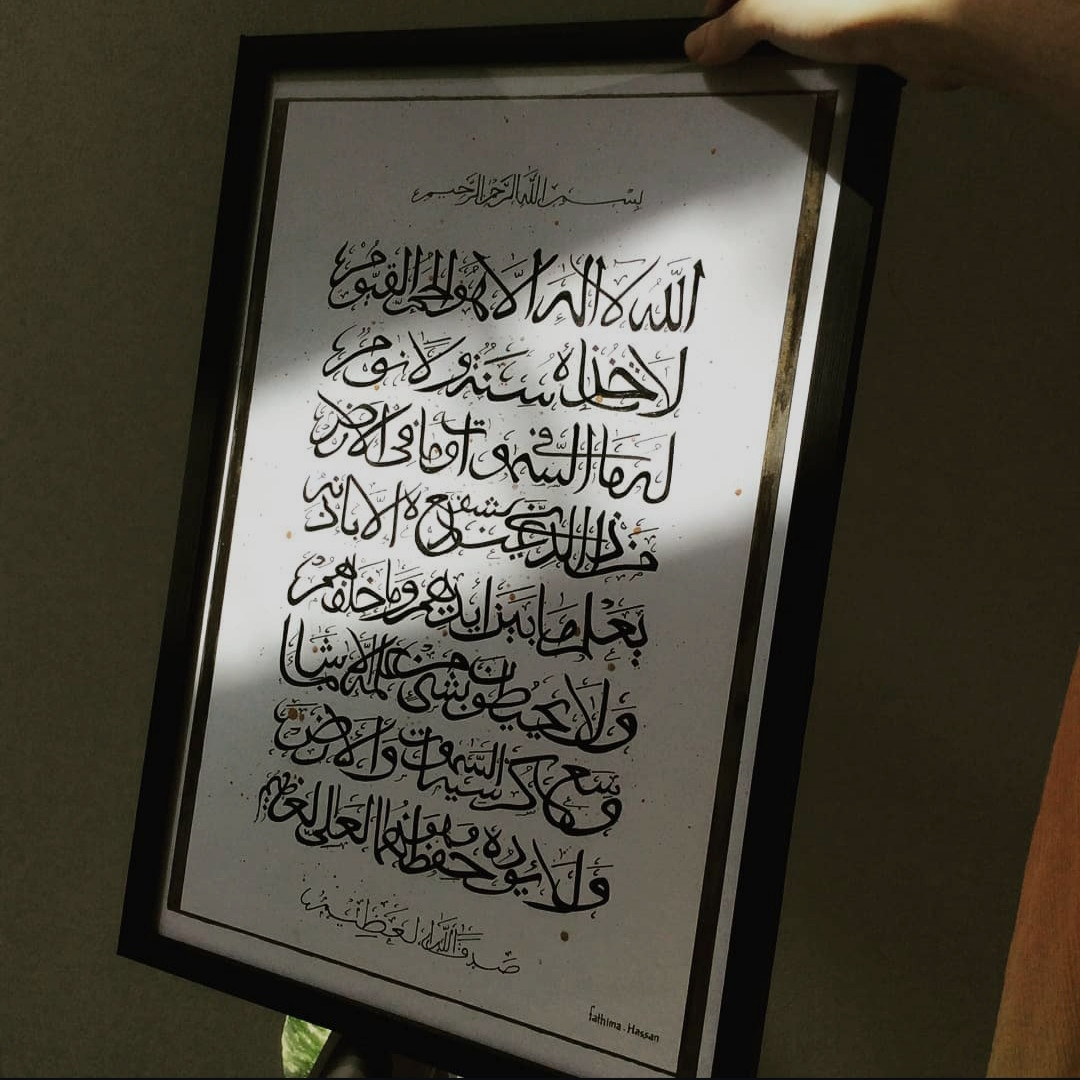 بسم الله الرحمن الرحيم
الله لا اله الا هو الحي القيوم
لا تاخذه سنة ولا نوم
له ما في السموات وما في الارض
من ذا الذي يشفع عنده الا باذنه
يعلم ما بين ايديهم وما خلفهم
ولا يحيطون بشئ من علمه الا بما شا
وسع كرسيه السموات والارض
ولا يؤده حفظهما وهو العلي العظيم
صدق الله العظيم
fathima . Hassan